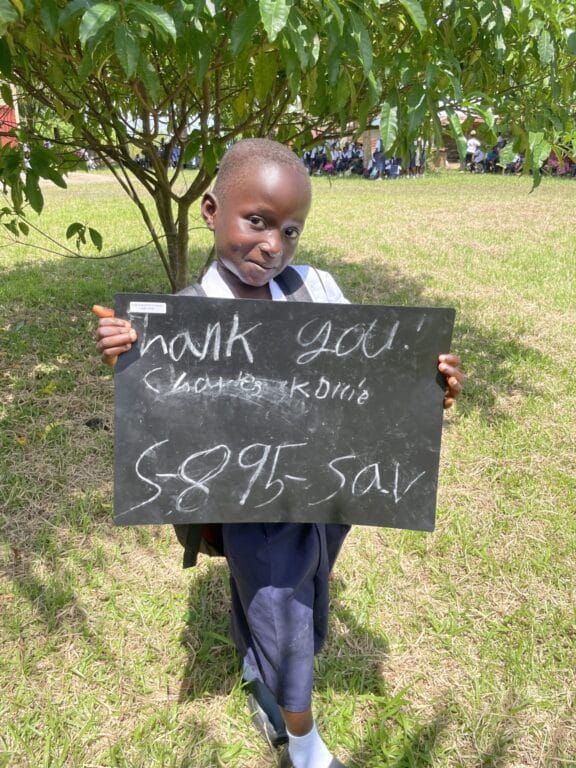 Thank you!
Charles Korrie
S-895-Sav